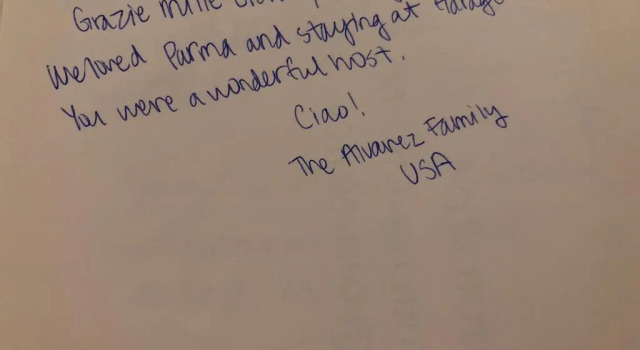 Grazie mille
We loved Parma and staying at
You were a wonderful host.
Ciao!
The Alvarez Family
USA